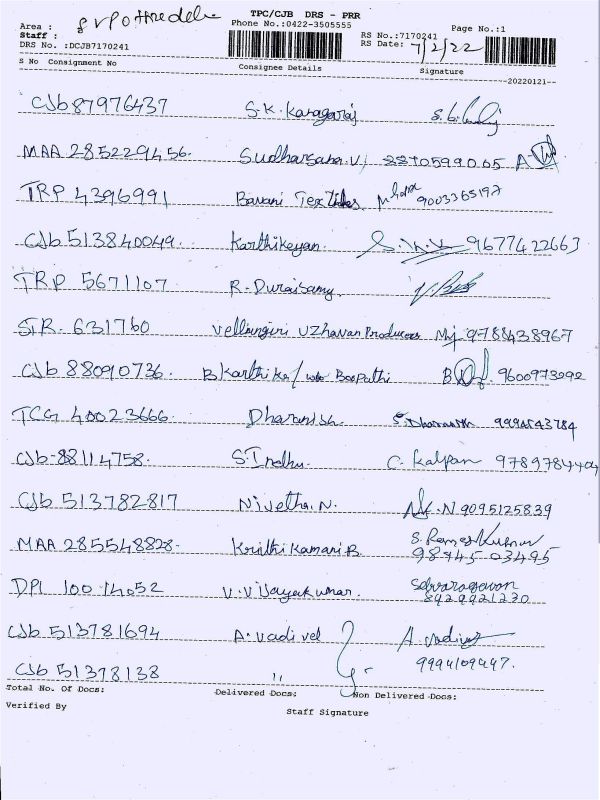 TPC/CJB DRS - PRR
Area : S V P ottredel
Phone No.:0422-3505555 Page No.:1
Staff : RS No.:7170241
DRS No. :DCJB7170241 RS Date: 7/2/22
S No Consignment No Consignee Details Signature
--20220121--
CJb 87976437 S.K. Karagaraj
MAA 285229456. Sudharsana.V
TRP 4396991 Bavani Textiles 9003365197
CJb 513840049. Karthikeyan. 9677422663
TRP 5671107 R. Duraisamy.
STR. 631760 Vellingiri Uzhavan Producers 9788438967
CJb 88090736. B Karthika / w/o Boopathi B 9600973292
TCG 40023666. Dharanish. S. Dharanish 9994543784
CJb-88114758. S. Indhu. C. Kalpan 9789784404
CJb 513782817 Nivetha. N. N 9095125839
MAA 285548828. Krithi Kamani B. S. Ramesh Kumar
98745 03495
DPI 100 14052 V. Vijayakumar. Selvaragavan
8929921230
CJb 513781694 A. Vadivel A. Vadivel
CJb 51378138 " 9994109447.
Total No. Of Docs: Delivered Docs: Non Delivered Docs:
Verified By Staff Signature